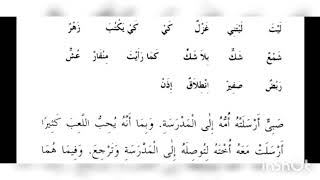 لَيْتَ لَيْتَنِي غَزْلٌ كَيْ كَيْ يَكْتُبَ زَهْرٌ
شَمْعٌ شَكٌّ بِلَا شَكٍّ كَمَا رَأَيْتَ مِنْقَارٌ عُشٌّ
رَبَضٌ صَفِيرٌ اِنْطِلَاقٌ إِذَنْ
صَبِيٌّ أَرْسَلَتْهُ أُمُّهُ إِلَى الْمَدْرَسَةِ. وَبِمَا أَنَّهُ يُحِبُّ اللَّعِبَ كَثِيرًا
أَرْسَلَتْ مَعَهُ أُخْتَهُ لِتُوصِلَهُ إِلَى الْمَدْرَسَةِ وَتَرْجِعَ. وَفِيمَا هُمَا
InShOt